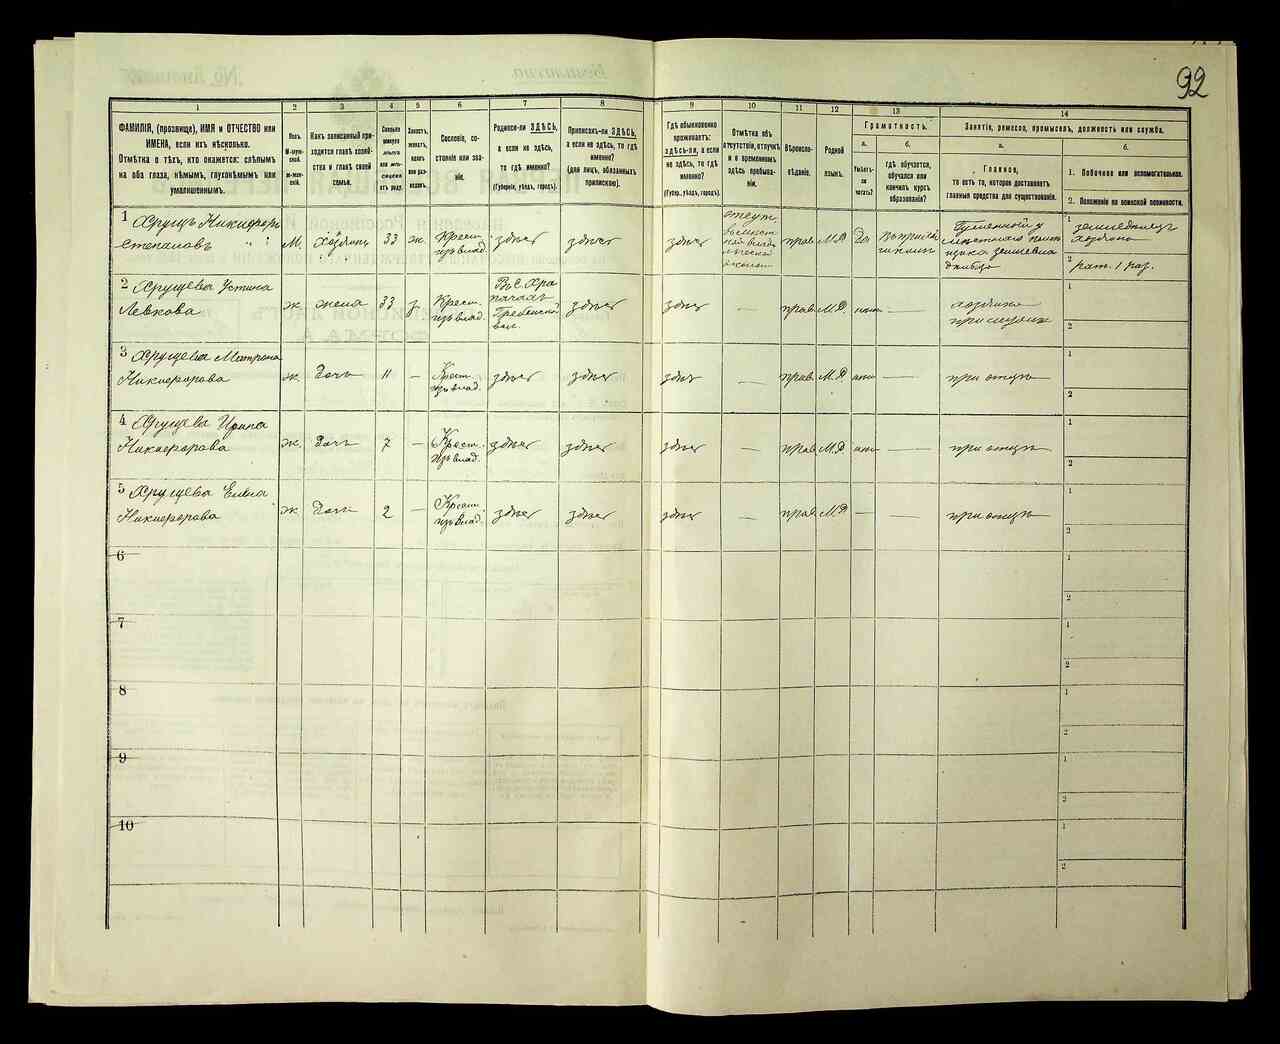 92
1
2
3
4
5
6
7
8
9
10
11
12
13
14
ФАМИЛІЯ, (прозвище), ИМЯ и ОТЧЕСТВО или
ИМЕНА, если ихъ нѣсколько.
Отмѣтка о тѣхъ, кто окажется: слѣпымъ
на оба глаза, нѣмымъ, глухонѣмымъ или
умалишеннымъ.
Полъ.
М-мужской.
Ж-женскій.
Какъ записанный при-
ходится главѣ хозяй-
ства и главѣ своей
семьи.
Сколько
минуло
лѣтъ
или мѣ-
сяцевъ
отъ роду.
Холостъ,
женатъ,
вдовъ
или раз-
веденъ.
Сословіе, со-
стояніе или зва-
ніе.
Родился-ли ЗДѢСЬ,
а если не здѣсь,
то гдѣ именно?
(Губернія, уѣздъ, городъ).
Приписанъ-ли ЗДѢСЬ,
а если не здѣсь, то гдѣ
именно?
(для лицъ, обязанныхъ
припискою).
Гдѣ обыкновенно
проживаетъ:
здѣсь-ли, а если
не здѣсь, то гдѣ
именно?
(Губер., уѣздъ, городъ).
Отмѣтка объ
отсутствіи, отлучкѣ
и о временномъ
здѣсь пребыва-
ніи.
Вѣроиспо-
вѣданіе.
Родной
языкъ.
Грамотность.
а.
Умѣетъ-
ли
читать?
б.
гдѣ обучается,
обучался или
кончилъ курсъ
образованія?
Занятіе, ремесло, промыселъ, должность или служба.
а.
Главное,
то есть то, которое доставляетъ
главныя средства для существованія.
б.
1. Побочное или вспомогательное.
2. Положеніе по воинской повинности.
1 Хрущъ Никифоръ
Степановъ М. хозяинъ 33 ж. Крест. изъ влад. здѣсь здѣсь здѣсь отсут. прав. М.Р. Да
1 земледѣлецъ
хозяинъ
2 рат. 1 раз.
2 Хрущева Устина
Левкова ж жена 33 з. Крест. изъ влад. здѣсь здѣсь — прав. М.Р. —
Гребенской
вол.
1
2
3 Хрущева Матрена
Никифорова ж. Дочь 11 — Крест. изъ влад. здѣсь здѣсь здѣсь — прав. М.Р. — при отцѣ
1
2
4 Хрущева Ирина
Никифорова ж. Дочь 7 — Крест. изъ влад. здѣсь здѣсь здѣсь — прав. М.Р. — при отцѣ
1
2
5 Хрущева Елена
Никифорова ж Дочь 2 — Крест. изъ влад. здѣсь здѣсь здѣсь — прав. М.Р. — при отцѣ
1
2
6
1
2
7
1
2
8
1
2
9
1
2
10
1
2